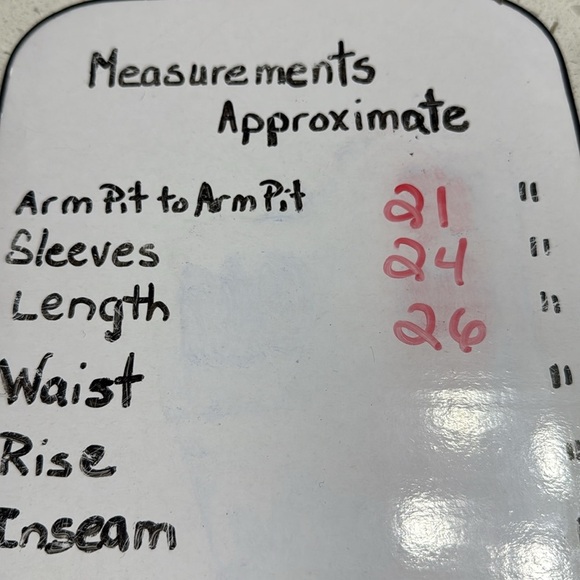 Measurements
Approximate
Arm Pit to Arm Pit 21 "
Sleeves 24 "
Length 26 "
Waist "
Rise "
Inseam